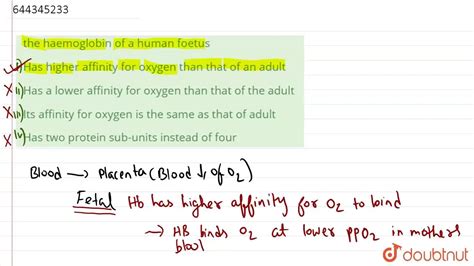 644345233
the haemoglobin of a human foetus
✓i) Has higher affinity for oxygen than that of an adult
X ii) Has a lower affinity for oxygen than that of the adult
X iii) Its affinity for oxygen is the same as that of adult
X iv) Has two protein sub-units instead of four
Blood → Placenta (Blood ↓ of O2)
Fetal Hb has higher affinity for O2 to bind
→ HB binds O2 at lower PPO2 in mothers
blood
doubtnut